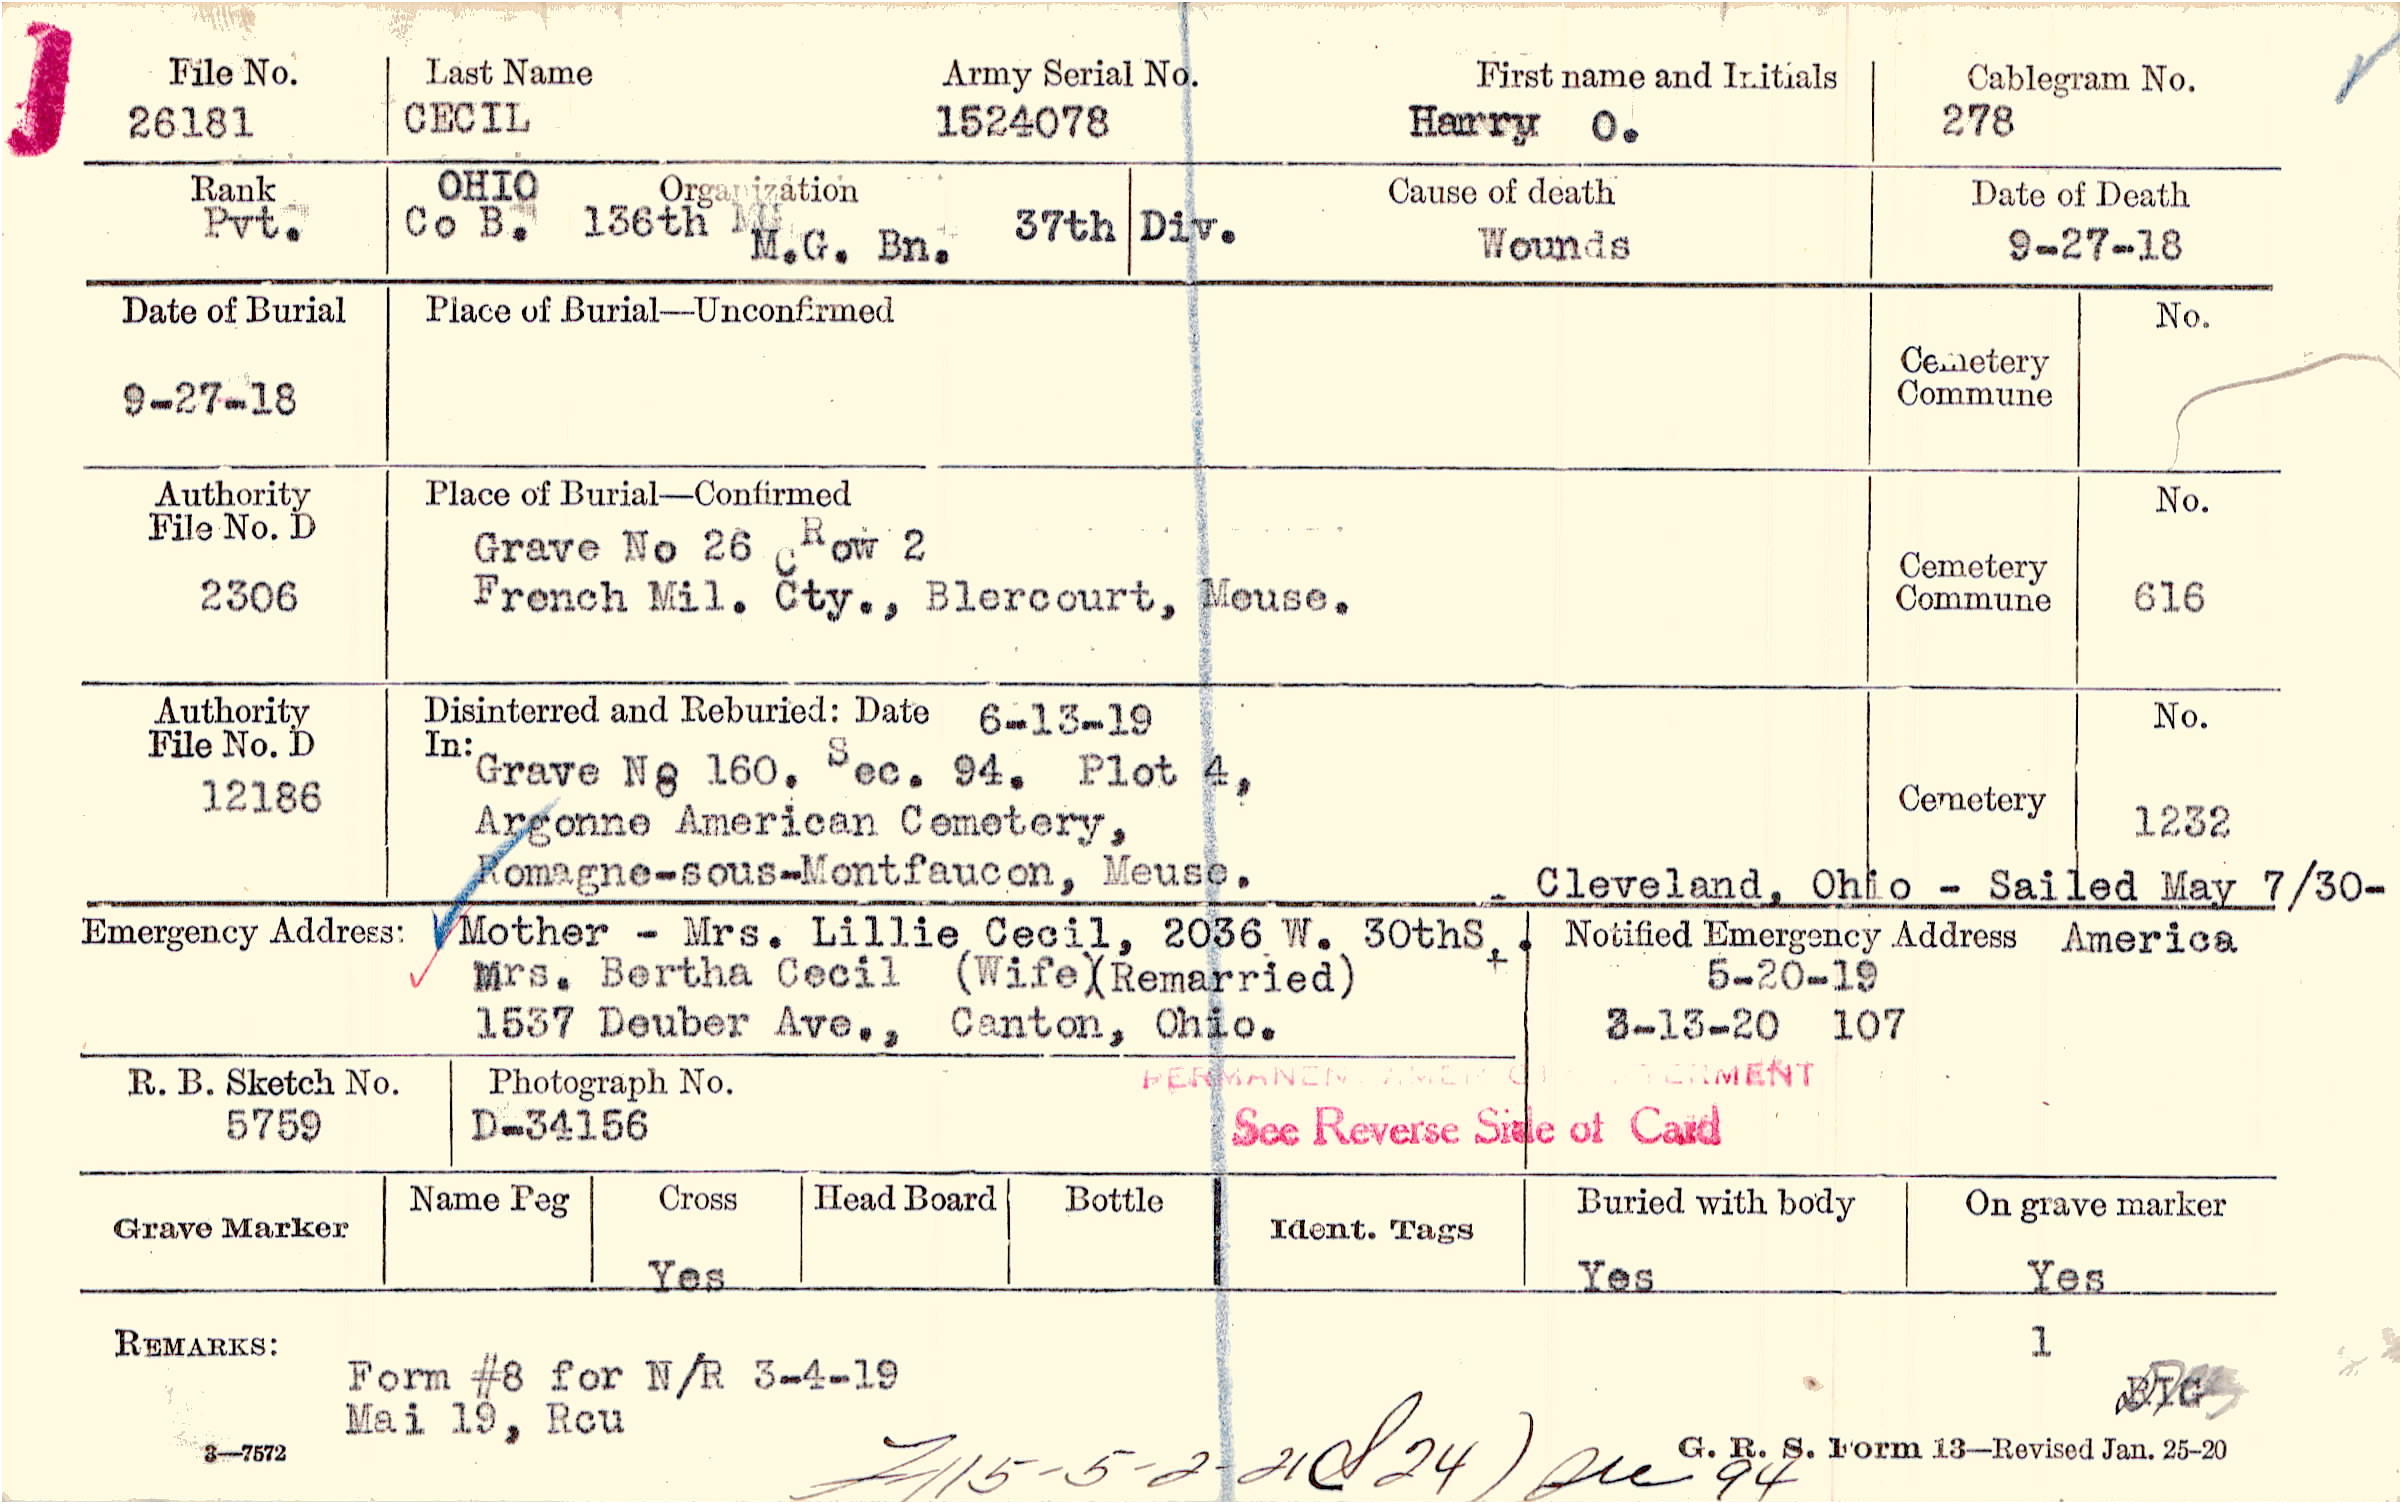 File No. Last Name Army Serial No. First name and Initials Cablegram No.
26181 CECIL 1524078 Harry O. 278
Rank OHIO Organization Cause of death Date of Death
Pvt. Co B. 136th M.G. Bn. 37th Div. Wounds 9-27-18
Date of Burial Place of Burial—Unconfirmed No.
9-27-18 Cemetery
Commune
Authority Place of Burial—Confirmed No.
File No. D Grave No 26 Row 2
2306 French Mil. Cty., Blercourt, Meuse. Cemetery
Commune 616
Authority Disinterred and Reburied: Date 6-13-19 No.
File No. D In: Grave No 160. Sec. 94. Plot 4,
12186 Argonne American Cemetery, Cemetery 1232
Romagne-sous-Montfaucon, Meuse. - Cleveland, Ohio - Sailed May 7/30-
Emergency Address: Mother - Mrs. Lillie Cecil, 2036 W. 30thSt. Notified Emergency Address America
Mrs. Bertha Cecil (Wife)(Remarried) 5-20-19
1537 Deuber Ave., Canton, Ohio. 3-13-20 107
R. B. Sketch No. Photograph No. PERMANENT
5759 D-34156 See Reverse Side of Card
Grave Marker Name Peg Cross Head Board Bottle Ident. Tags Buried with body On grave marker
Yes Yes Yes
REMARKS: 1
Form #8 for N/R 3-4-19
Mai 19, Rcu
3—7572 G. R. S. Form 13—Revised Jan. 25-20
15-5-2-21 24) 94